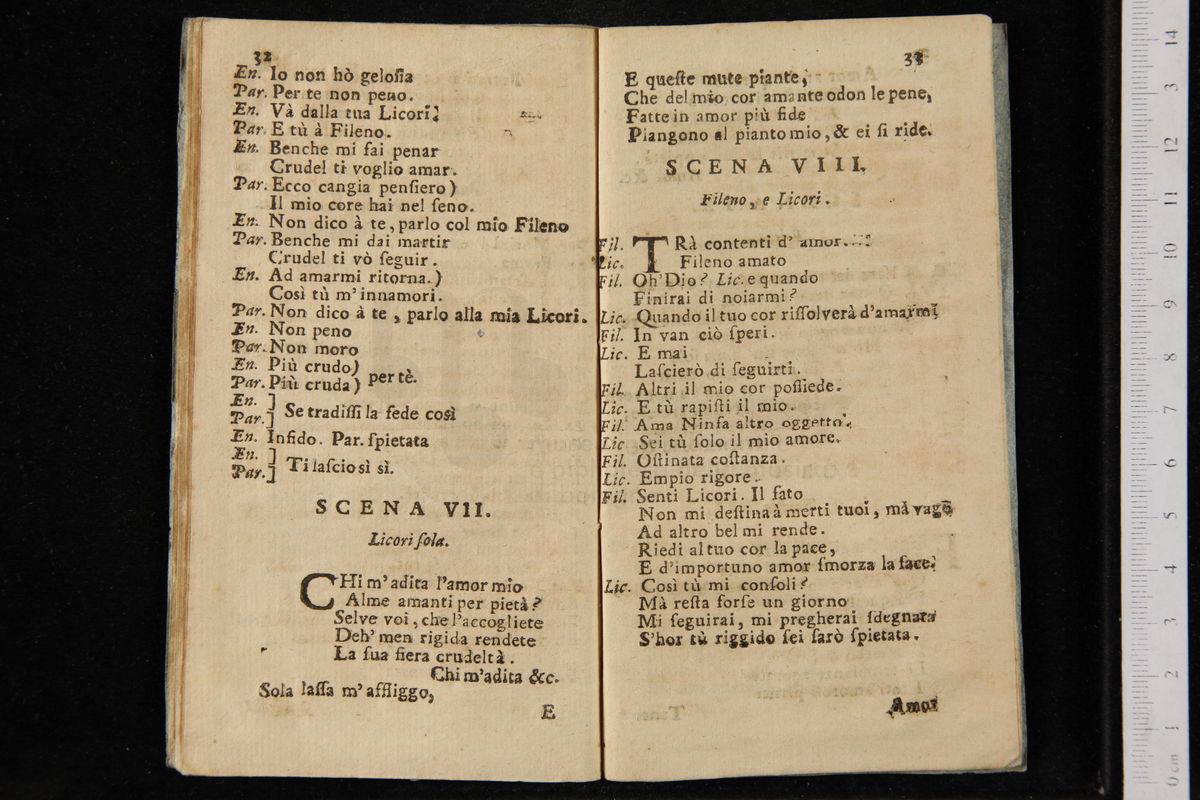 32
En. Io non hò geloſia
Par. Per te non peno.
En. Và dalla tua Licori!
Par. E tù à Fileno.
En. Benche mi fai penar
Crudel ti voglio amar.
Par. Ecco cangia penſiero)
Il mio core hai nel ſeno.
En. Non dico à te, parlo col mio Fileno
Par. Benche mi dai martir
Crudel ti vò ſeguir.
En. Ad amarmi ritorna.)
Così tù m'innamori.
Par. Non dico à te, parlo alla mia Licori.
En. Non peno
Par. Non moro
En. Più crudo)
Par. Più cruda) per tè.
En. ]
Par.] Se tradiſſi la fede così
En. Infido. Par. ſpietata
En. ]
Par.] Ti laſcio sì sì.
SCENA VII.
Licori ſola.
CHi m'adita l'amor mio
Alme amanti per pietà?
Selve voi, che l'accogliete
Deh' men rigida rendete
La ſua fiera crudeltà.
Chi m'adita &c.
Sola laſſa m'affliggo,
E
33
E queſte mute piante,
Che del mio cor amante odon le pene,
Fatte in amor più fide
Piangono al pianto mio, & ei ſi ride.
SCENA VIII.
Fileno, e Licori.
Fil. TRà contenti d' amor....
Lic. Fileno amato
Fil. Oh' Dio? Lic. e quando
Finirai di noiarmi?
Lic. Quando il tuo cor riſſolverà d'amarmi,
Fil. In van ciò ſperi.
Lic. E mai
Laſcierò di ſeguirti.
Fil. Altri il mio cor poſſiede.
Lic. E tù rapiſti il mio.
Fil. Ama Ninfa altro oggetto.
Lic Sei tù ſolo il mio amore.
Fil. Oſtinata coſtanza.
Lic. Empio rigore.
Fil. Senti Licori. Il fato
Non mi deſtina à merti tuoi, mà vago
Ad altro bel mi rende.
Riedi al tuo cor la pace,
E d'importuno amor ſmorza la face.
Lic. Così tù mi conſoli?
Mà reſta forſe un giorno
Mi ſeguirai, mi pregherai ſdegnata
S'hor tù riggido ſei ſarò ſpietata.
Amor